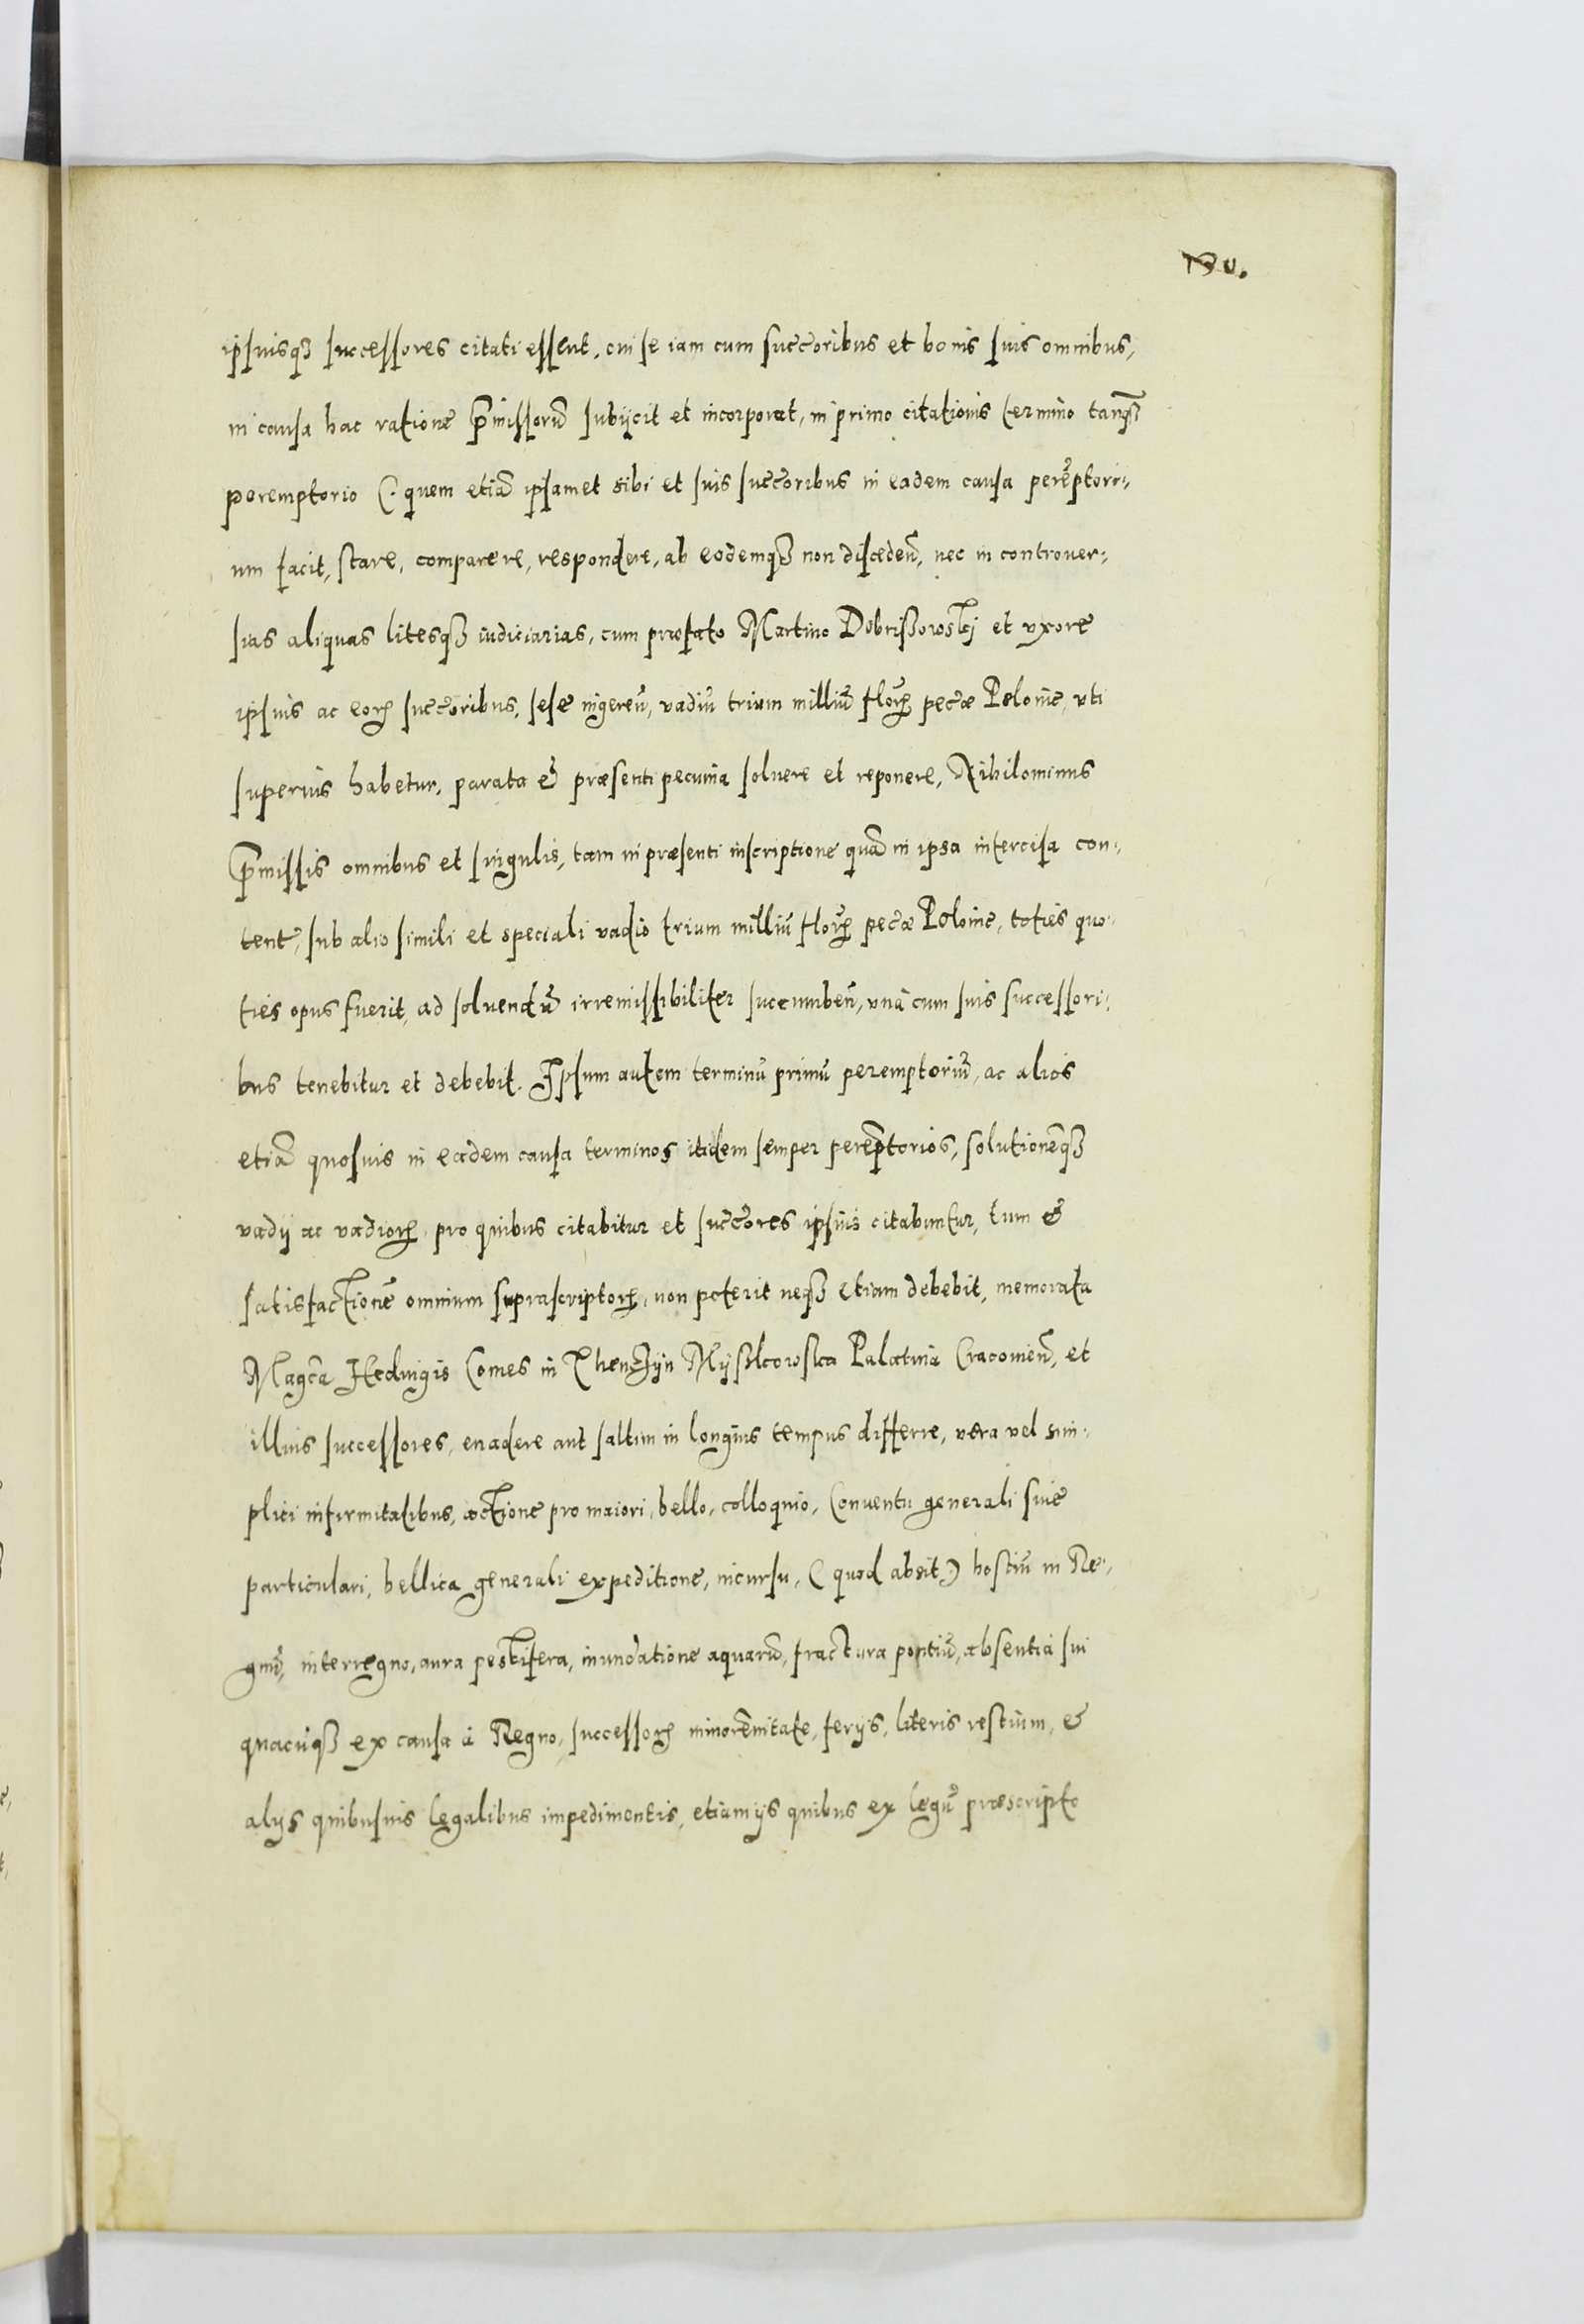 ipsiusqꝫ successores citati essent, cui se iam cum succ̃oribus et bonis suis omnibus,
in causa hac ratione p̃missorũ subijcit et incorporat, in primo citationis termino tanqꝫ
peremptorio (: quem etiã ipsamet sibi et suis succ̃oribus in eadem causa perẽptori-
um facit, stare, comparere, respondere, ab eodemqꝫ non discedeñ, nec in controuer-
sias aliquas litesqꝫ iudiciarias, cum præfato Martino Dobrißowskj et vxore
ipsius ac eoꝝ succ̃oribus, sese ingereñ, vadiũ trium milliũ floꝝ pec̃æ Poloniæ, vti
superius habetur, parata & præsenti pecunia soluere et reponere, Nihilominus
p̃missis omnibus et singulis, tam in præsenti inscriptione quã in ipsa intercisa con-
tent̃, sub alio simili et speciali vadio trium milliũ floꝝ pec̃æ Poloniæ, toties quo-
ties opus fuerit, ad soluendũ irremissibiliter succumbeñ, vnà cum suis successori-
bus tenebitur et debebit. Ipsum autem terminũ primũ peremptoriũ, ac alios
etiã quosuis in eadem causa terminos itidem semper perẽptorios, solutionẽqꝫ
vadij ac vadioꝝ pro quibus citabitur et succ̃ores ipsius citabuntur, tum &
satisfactionẽ omnium suprascriptoꝝ, non poterit neqꝫ etiam debebit, memorata
Magc̃a Heduigis Comes in Thenczijn Mijßkowska Palatina Cracouieñ, et
illius successores, euadere aut saltim in longius tempus differre, vera vel sim-
plici infirmitatibus, actione pro maiori, bello, colloquio, Conuentu generali siue
particulari, bellica generali expeditione, incursu, (: quod absit :) hostiũ in Re-
gnũ, interregno, aura pestifera, inundatione aquarũ, fractura pontiũ, absentia sui
quacũqꝫ ex causa à Regno, successoꝝ minorẽnitate, ferijs, literis restium, &
alijs quibusuis legalibus impedimentis, etiam ijs quibus ex legũ præscripto